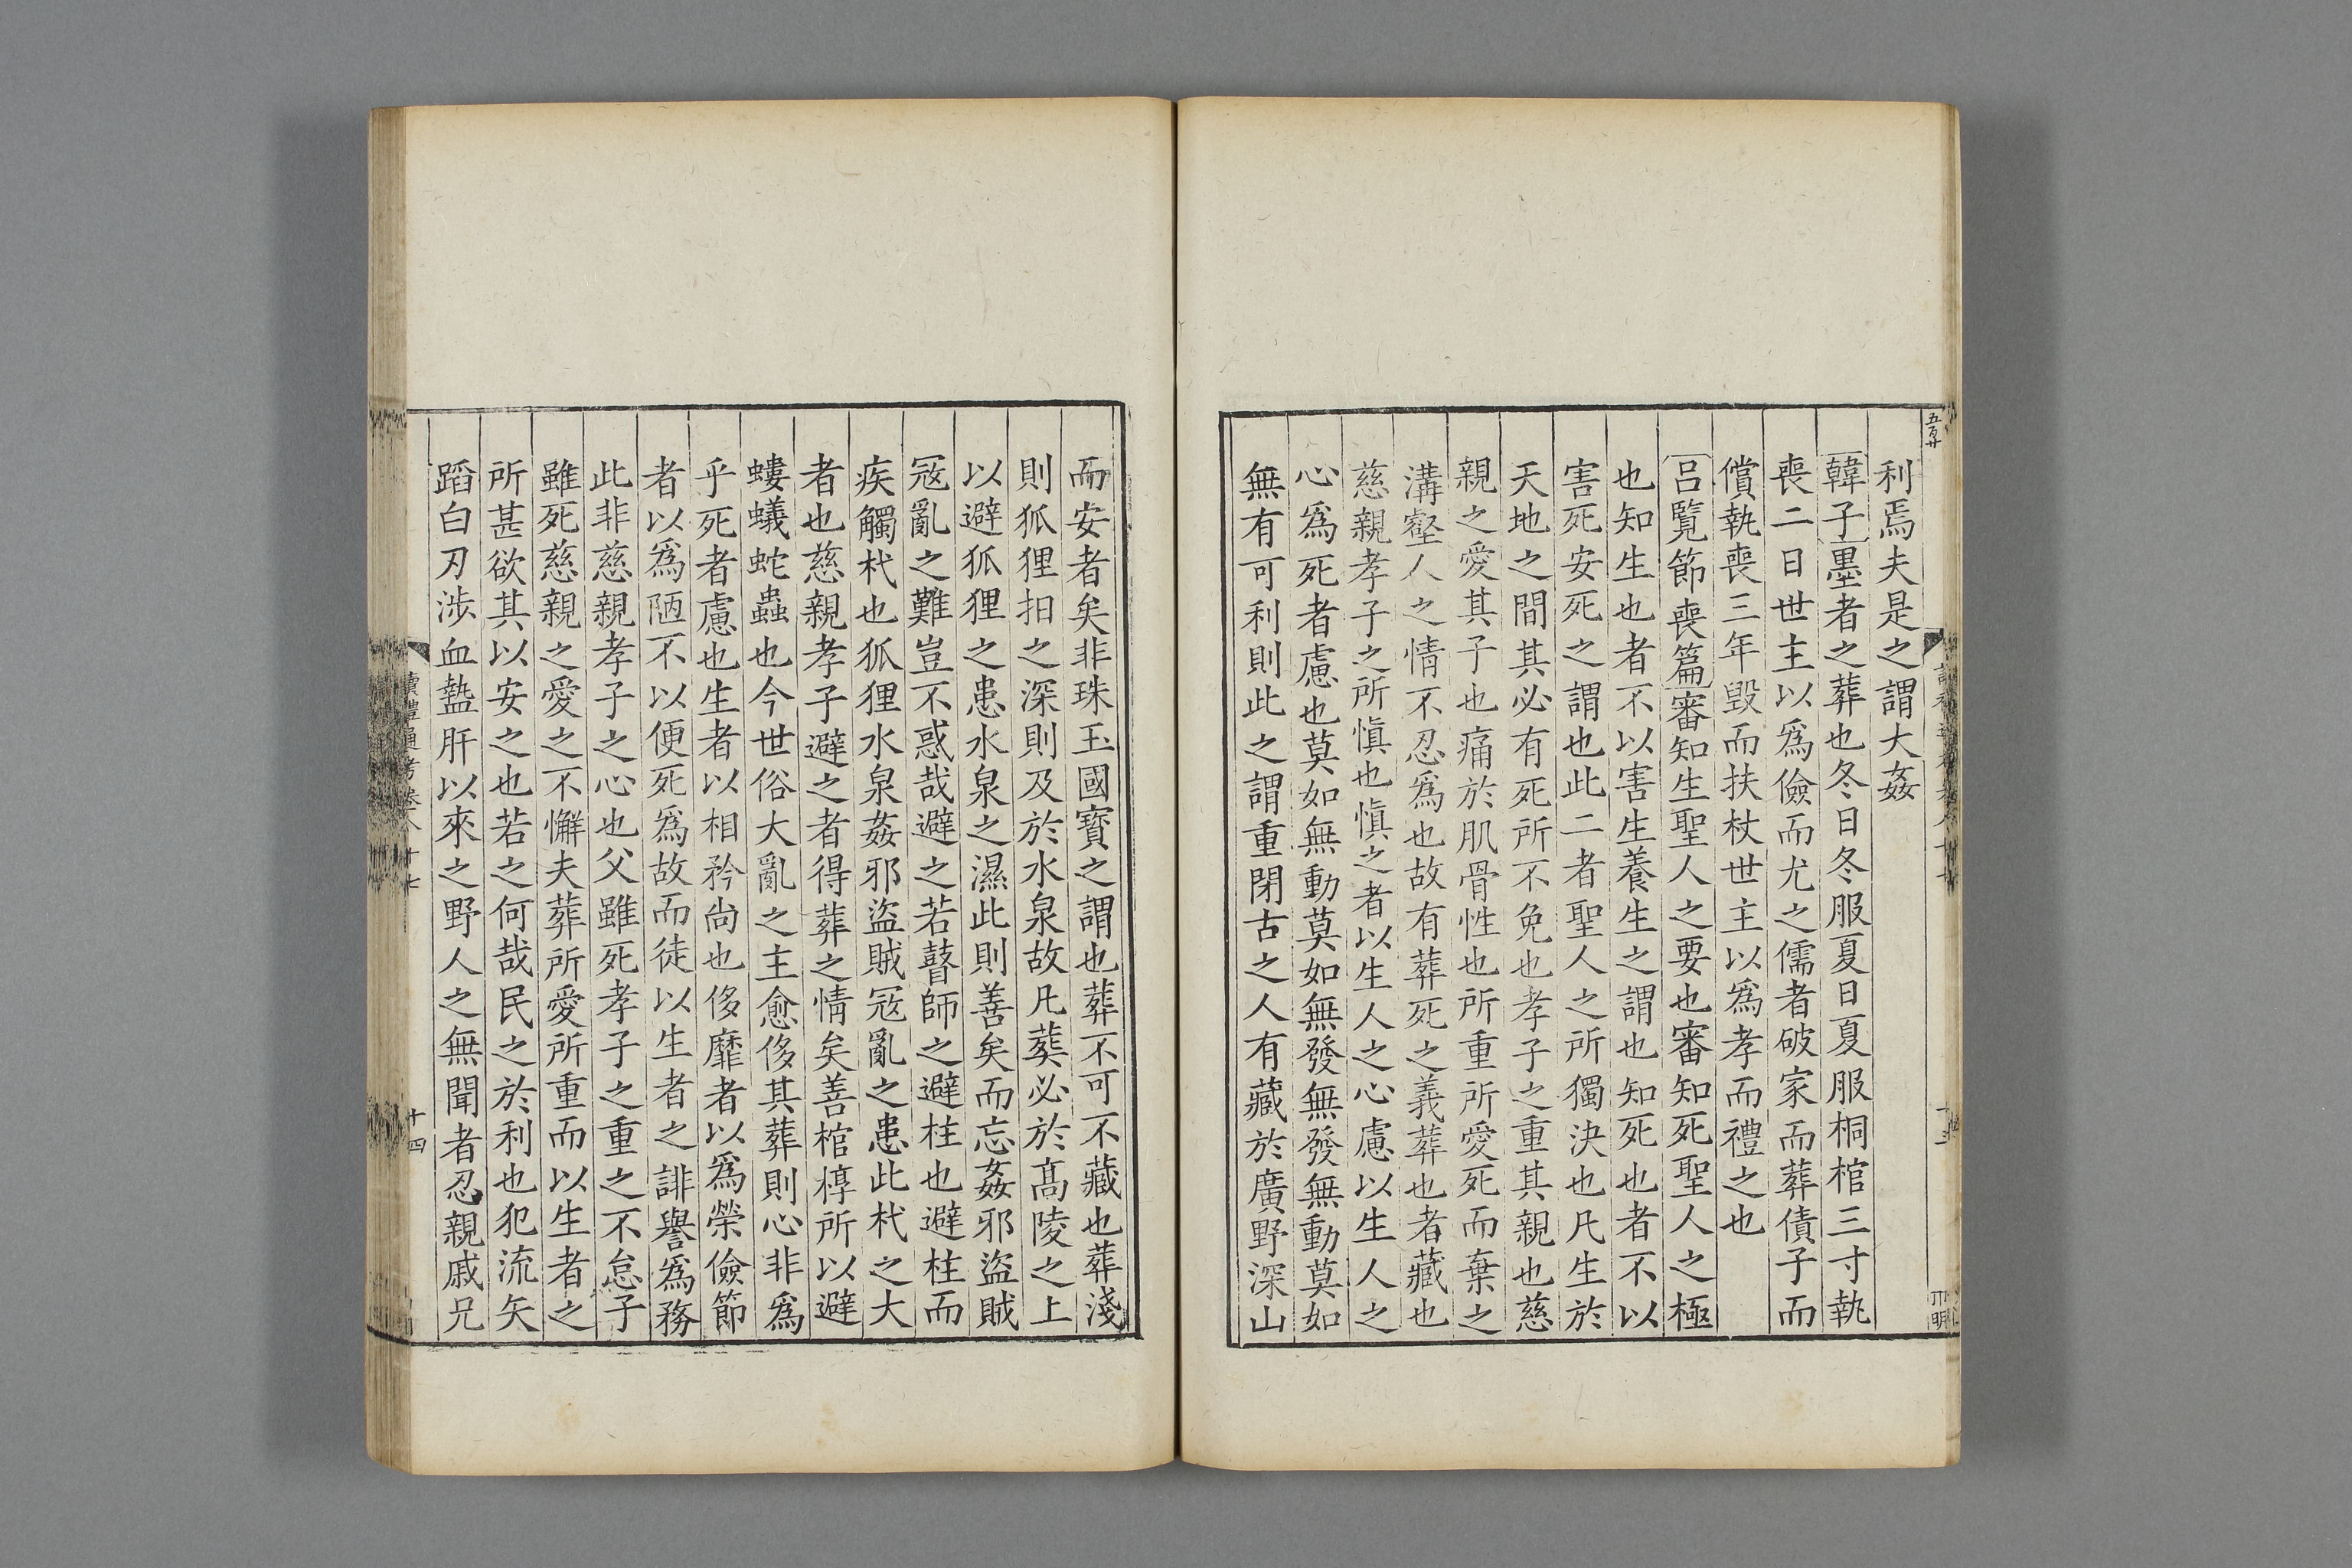 利焉夫是之謂大姦
韓子墨者之葬也冬日冬服夏日夏服桐棺三寸執
喪二日世主以爲儉而尤之儒者破家而葬債子而
償執喪三年毀而扶杖世主以爲孝而禮之也
呂覽節喪篇審知生聖人之要也審知死聖人之極
也知生也者不以害生養生之謂也知死也者不以
害死安死之謂也此二者聖人之所獨決也凡生於
天地之間其必有死所不免也孝子之重其親也慈
親之愛其子也痛於肌骨性也所重所愛死而棄之
溝壑人之情不忍爲也故有葬死之義葬也者藏也
慈親孝子之所愼也愼之者以生人之心慮以生人之
心爲死者慮也莫如無動莫如無發無發無動莫如
無有可利則此之謂重閉古之人有藏於廣野深山
而安者矣非珠玉國寶之謂也葬不可不藏也葬淺
則狐狸抇之深則及於水泉故凡葬必於髙陵之上
以避狐狸之患水泉之濕此則善矣而忘姦邪盜賊
冦亂之難豈不惑哉避之若瞽師之避柱也避柱而
疾觸杙也狐狸水泉姦邪盜賊冦亂之患此杙之大
者也慈親孝子避之者得葬之情矣善棺椁所以避
螻蟻蛇蟲也今世俗大亂之主愈侈其葬則心非爲
乎死者慮也生者以相矜尙也侈靡者以爲榮儉節
者以爲陋不以便死爲故而徒以生者之誹譽爲務
此非慈親孝子之心也父雖死孝子之重之不怠子
雖死慈親之愛之不懈夫葬所愛所重而以生者之
所甚欲其以安之也若之何哉民之於利也犯流矢
蹈白刃涉血盩肝以來之野人之無聞者忍親戚兄
讀禮通考卷八十七
十四